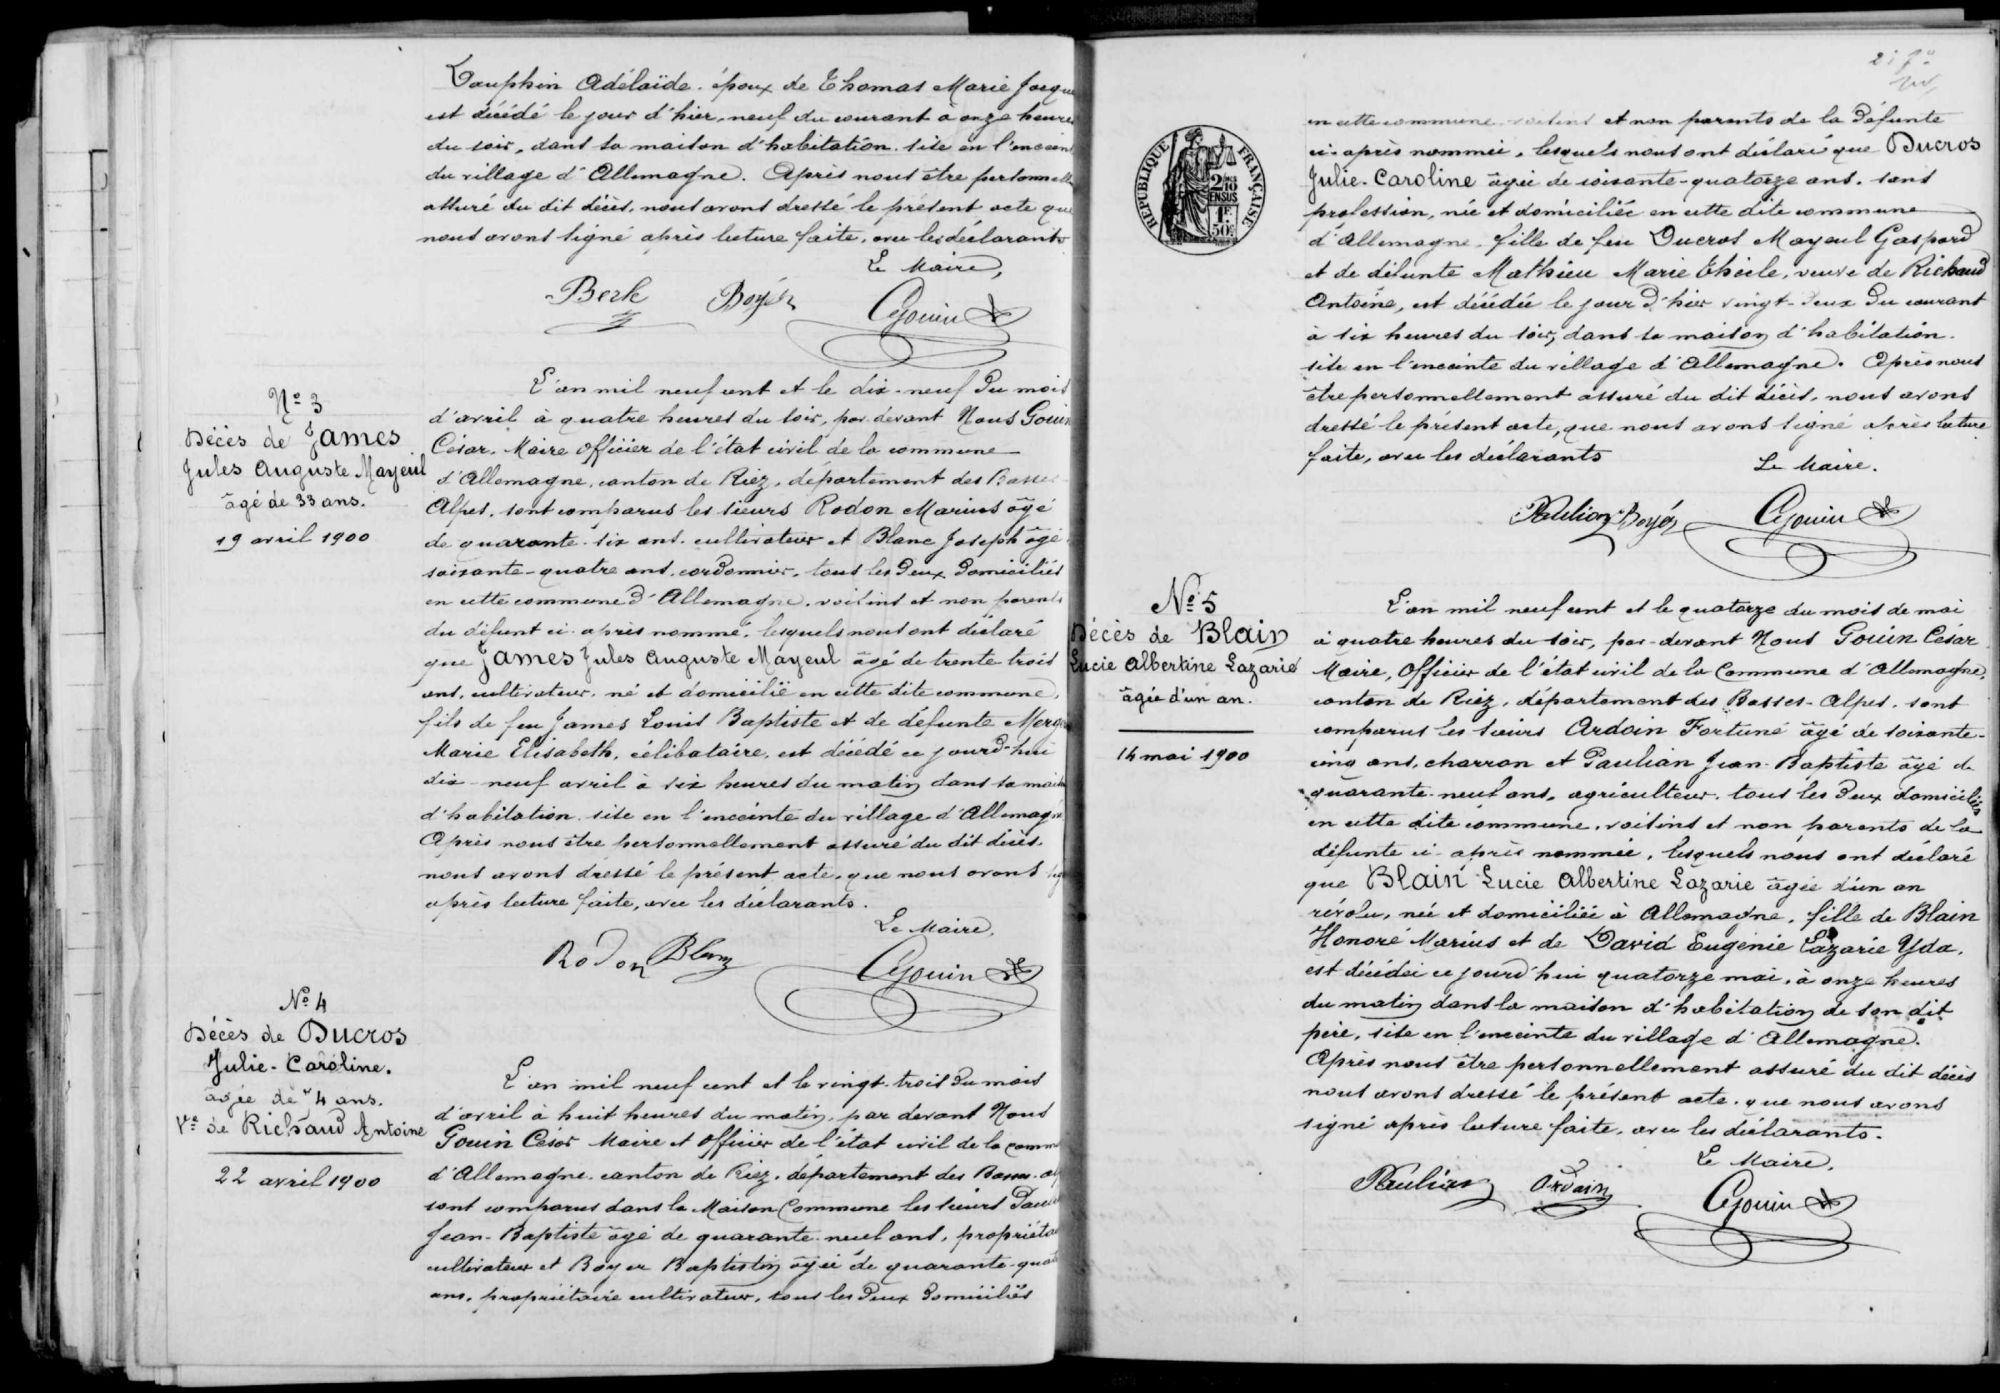 Dauphin Adélaïde. époux de Thomas Marie Jacque
est décédé le jour d'hier, neuf du courant à onze heures
du soir, dans sa maison d'habitation sise en l'encein
du village d'Allemagne. Après nous être personnelle
assuré du dit décès, nous avons dressé le présent acte que
nous avons signé après lecture faite, avec les déclarants
Le Maire,
Berk Boyer CGouin
Nº 3
Décès de James
Jules Auguste Mayeul
âgé de 33 ans.
19 avril 1900
L'an mil neuf cent et le dix-neuf du mois
d'avril à quatre heures du soir, par devant Nous Gouin
César, Maire Officier de l'état civil de la commune
d'Allemagne, canton de Riez, département des Basses
Alpes, sont comparus les sieurs Rodon Marius âgé
de quarante-six ans, cultivateur et Blanc Joseph âgé
soixante-quatre ans, cordonnier, tous les deux domiciliés
en cette commune d'Allemagne, voisins et non parents
du défunt ci-après nommé, lesquels nous ont déclaré
que James Jules Auguste Mayeul âgé de trente trois
ans, cultivateur, né et domicilié en cette dite commune,
fils de feu James Louis Baptiste et de défunte
Marie Elisabeth, célibataire, est décédé ce jourd'hui
dix-neuf avril à six heures du matin dans sa mais
d'habitation sise en l'enceinte du village d'Allemagne
Après nous être personnellement assuré du dit décès,
nous avons dressé le présent acte, que nous avons sig
après lecture faite, avec les déclarants.
Le Maire,
Rodon Blanc CGouin
Nº 4
Décès de Ducros
Julie-Caroline.
âgée de 74 ans.
Vve de Richaud Antoine
22 avril 1900
L'an mil neuf cent et le vingt-trois du mois
d'avril à huit heures du matin, par devant Nous
Gouin César Maire et Officier de l'état civil de la comm
d'Allemagne, canton de Riez, département des Basses-Alp
sont comparus dans la Maison Commune les sieurs Paul
Jean-Baptiste âgé de quarante-neuf ans, propriéta
cultivateur et Boyer Baptistin âgé de quarante-quat
ans, propriétaire cultivateur, tous les deux domiciliés
2
en cette commune, voisins et non parents de la défunte
ci-après nommée, lesquels nous ont déclaré que Ducros
Julie-Caroline âgée de soixante-quatorze ans, sans
profession, née et domiciliée en cette dite commune
d'Allemagne, fille de feu Ducros Mayeul Gaspard
et de défunte Mathieu Marie Thècle, veuve de Richaud
Antoine, est décédée le jour d'hier vingt-deux du courant
à six heures du soir, dans sa maison d'habitation.
sise en l'enceinte du village d'Allemagne. Après nous
être personnellement assuré du dit décès, nous avons
dressé le présent acte, que nous avons signé après lecture
faite, avec les déclarants
Le Maire.
Paulian Boyer CGouin
RÉPUBLIQUE FRANÇAISE
2/10 EN SUS
1F.
50c
Nº 5
Décès de Blain
Lucie Albertine Lazarie
âgée d'un an.
14 mai 1900
L'an mil neuf cent et le quatorze du mois de mai
à quatre heures du soir, par-devant Nous Gouin César
Maire, Officier de l'état civil de la Commune d'Allemagne,
canton de Riez, département des Basses-Alpes, sont
comparus les sieurs Ardoin Fortuné âgé de soixante-
cinq ans, charron et Paulian Jean-Baptiste âgé de
quarante-neuf ans, agriculteur, tous les deux domiciliés
en cette dite commune, voisins et non parents de la
défunte ci-après nommée, lesquels nous ont déclaré
que Blain Lucie Albertine Lazarie âgée d'un an
révolu, née et domiciliée à Allemagne, fille de Blain
Honoré Marius et de David Eugénie Lazarie Yda,
est décédée ce jourd'hui quatorze mai, à onze heures
du matin dans la maison d'habitation de son dit
père, sise en l'enceinte du village d'Allemagne.
Après nous être personnellement assuré du dit décès
nous avons dressé le présent acte, que nous avons
signé après lecture faite, avec les déclarants.
Le Maire,
Paulian Ardoin CGouin